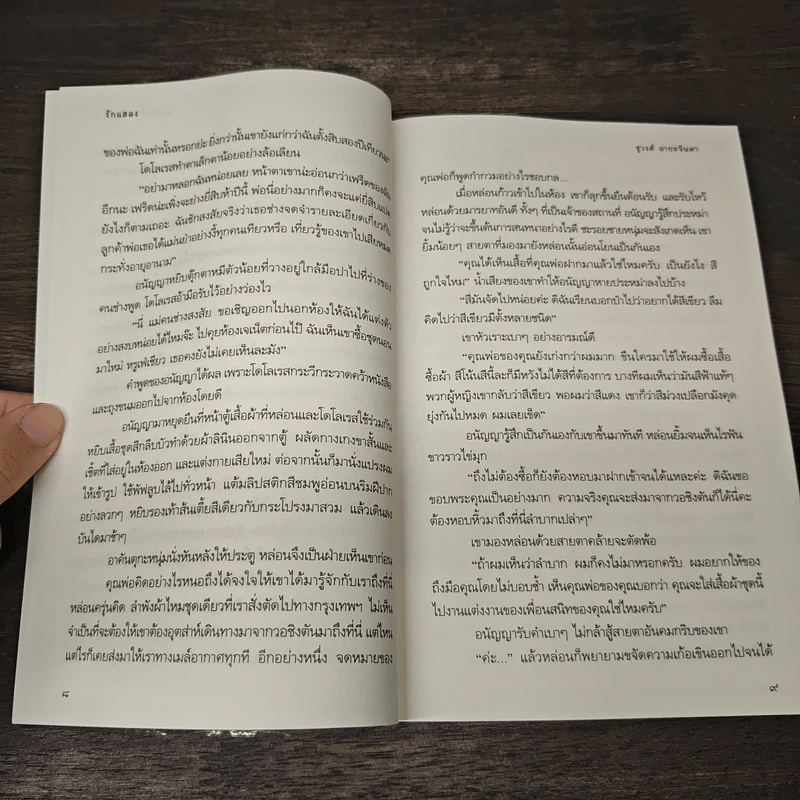 รักแสดง
ของพ่อฉันเท่านั้นหรอกย่ะ ยิ่งกว่านั้นเขายังแก่กว่าฉันตั้งสิบสองปีเทียวนะ
โดโลเรสทำตาเล็กตาน้อยอย่างล้อเลียน
“อย่ามาหลอกฉันหน่อยเลย หน้าตาเขาน่ะอ่อนกว่าเฟร็ดของฉัน
อีกนะ เฟร็ดน่ะเพิ่งจะอย่างยี่สิบห้าปีนี้ พ่อนี่อย่างมากก็คงจะแค่ยี่สิบแปด
ยังไงก็ตามเถอะ ฉันชักสงสัยจริงว่าเธอช่างจดจำรายละเอียดเกี่ยวกับ
ลูกค้าพ่อเธอได้แม่นยำอย่างงี้ทุกคนเทียวหรือ เที่ยวรู้ของเขาไปเสียหมด
กระทั่งอายุอานาม”
อนัญญาหยิบตุ๊กตาหมีตัวน้อยที่วางอยู่ใกล้มือปาไปที่ร่างของ
คนช่างพูด โดโลเรสอ้ามือรับไว้อย่างว่องไว
“นี่ แม่คนช่างสงสัย ขอเชิญออกไปนอกห้องให้ฉันได้แต่งตัว
อย่างสงบหน่อยได้ไหมจ๊ะ ไปคุยห้องเจเน็ตก่อนไป๊ ฉันเห็นเขาซื้อชุดนอน
มาใหม่ หรูเฟ่เชียว เธอคงยังไม่เคยเห็นละมัง”
คำพูดของอนัญญาได้ผล เพราะโดโลเรสกระวีกระวาดคว้าหนังสือ
และถุงขนมออกไปจากห้องโดยดี
อนัญญามาหยุดยืนที่หน้าตู้เสื้อผ้าที่หล่อนและโดโลเรสใช้ร่วมกัน
หยิบเสื้อชุดสีกลีบบัวทำด้วยผ้าลินินออกจากตู้ ผลัดกางเกงขาสั้นและ
เชิ้ตที่ใส่อยู่ในห้องออก และแต่งกายเสียใหม่ ต่อจากนั้นก็มานั่งแปรงผม
ให้เข้ารูป ใช้พัฟลูบไล้ไปทั่วหน้า แต้มลิปสติกสีชมพูอ่อนบนริมฝีปาก
อย่างลวกๆ หยิบรองเท้าส้นเตี้ยสีเดียวกับกระโปรงมาสวม แล้วเดินลง
บันไดมาช้าๆ
อาคันตุกะหนุ่มนั่งหันหลังให้ประตู หล่อนจึงเป็นฝ่ายเห็นเขาก่อน
คุณพ่อคิดอย่างไรหนอถึงได้จงใจให้เขาได้มารู้จักกับเราถึงที่นี่
หล่อนครุ่นคิด ลำพังผ้าไหมชุดเดียวที่เราสั่งตัดไปทางกรุงเทพฯ ไม่เห็น
จำเป็นที่จะต้องให้เขาต้องอุตส่าห์เดินทางมาจากวอชิงตันมาถึงที่นี่ แต่ไหน
แต่ไรก็เคยส่งมาให้เราทางเมล์อากาศทุกที อีกอย่างหนึ่ง จดหมายของ
๘
ชูวงศ์ ฉายะจินดา
คุณพ่อก็พูดกำกวมอย่างไรชอบกล...
เมื่อหล่อนก้าวเข้าไปในห้อง เขาก็ลุกขึ้นยืนต้อนรับ และรับไหว้
หล่อนด้วยมารยาทอันดี ทั้งๆ ที่เป็นเจ้าของสถานที่ อนัญญารู้สึกประหม่า
จนไม่รู้ว่าจะขึ้นต้นการสนทนาอย่างไรดี ชะรอยชายหนุ่มจะสังเกตเห็น เขา
ยิ้มน้อยๆ สายตาที่มองมายังหล่อนนั้นอ่อนโยนเป็นกันเอง
“คุณได้เห็นเสื้อที่คุณพ่อฝากมาแล้วใช่ไหมครับ เป็นยังไง สี
ถูกใจไหม” น้ำเสียงของเขาทำให้อนัญญาหายประหม่าลงไปบ้าง
“สีมันจัดไปหน่อยค่ะ ดิฉันเรียนบอกป๋าไปว่าอยากได้สีเขียว ลืม
คิดไปว่าสีเขียวมีตั้งหลายชนิด”
เขาหัวเราะเบาๆ อย่างอารมณ์ดี
“คุณพ่อของคุณยังเก่งกว่าผมมาก ขืนใครมาใช้ให้ผมซื้อเสื้อ
ซื้อผ้า สีโน้นสีนี้ละก็มีหวังไม่ได้สีที่ต้องการ บางทีผมเห็นว่ามันสีฟ้าแท้ๆ
พวกผู้หญิงเขากลับว่าสีเขียว พอผมว่าสีแดง เขาก็ว่าสีม่วงเปลือกมังคุด
ยุ่งกันไปหมด ผมเลยเข็ด”
อนัญญารู้สึกเป็นกันเองกับเขาขึ้นมาทันที หล่อนยิ้มจนเห็นไรฟัน
ขาวราวไข่มุก
“ถึงไม่ต้องซื้อก็ยังต้องหอบมาฝากเข้าจนได้แหละค่ะ ดิฉันขอ
ขอบพระคุณเป็นอย่างมาก ความจริงคุณจะส่งมาจากวอชิงตันก็ได้นี่คะ
ต้องหอบหิ้วมาถึงที่นี่ลำบากเปล่าๆ”
เขามองหล่อนด้วยสายตาคล้ายจะตัดพ้อ
“ถ้าผมเห็นว่าลำบาก ผมก็คงไม่มาหรอกครับ ผมอยากให้ของ
ถึงมือคุณโดยไม่บอบช้ำ เห็นคุณพ่อของคุณบอกว่า คุณจะใส่เสื้อผ้าชุดนี้
ไปงานแต่งงานของเพื่อนสนิทของคุณใช่ไหมครับ”
อนัญญารับคำเบาๆ ไม่กล้าสู้สายตาอันคมกริบของเขา
“ค่ะ...” แล้วหล่อนก็พยายามขจัดความเก้อเขินออกไปจนได้
๙